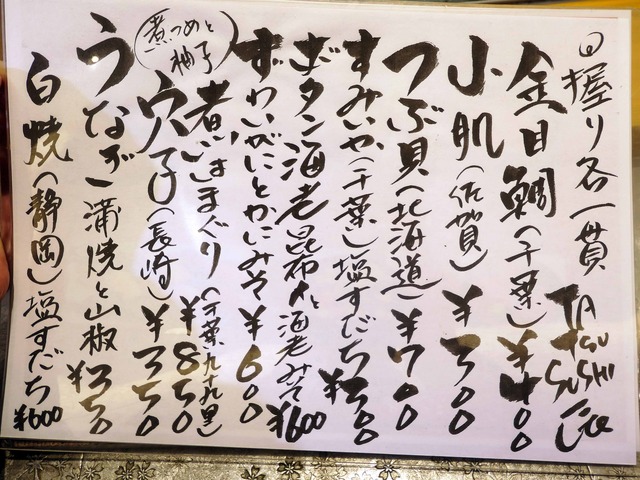 握り各一貫
TATSU SUSHI
金目鯛(千葉)¥400
小肌(佐賀)¥300
つぶ貝(北海道)¥700
すみいか(千葉)塩すだち¥300
ボタン海老昆布〆と海老みそ¥600
ずわいがにとかにみそ¥600
煮はまぐり(千葉九十九里)¥850
(煮つめと柚子)
穴子(長崎)¥350
うなぎ 蒲焼と山椒¥350
白焼(静岡)塩すだち¥600